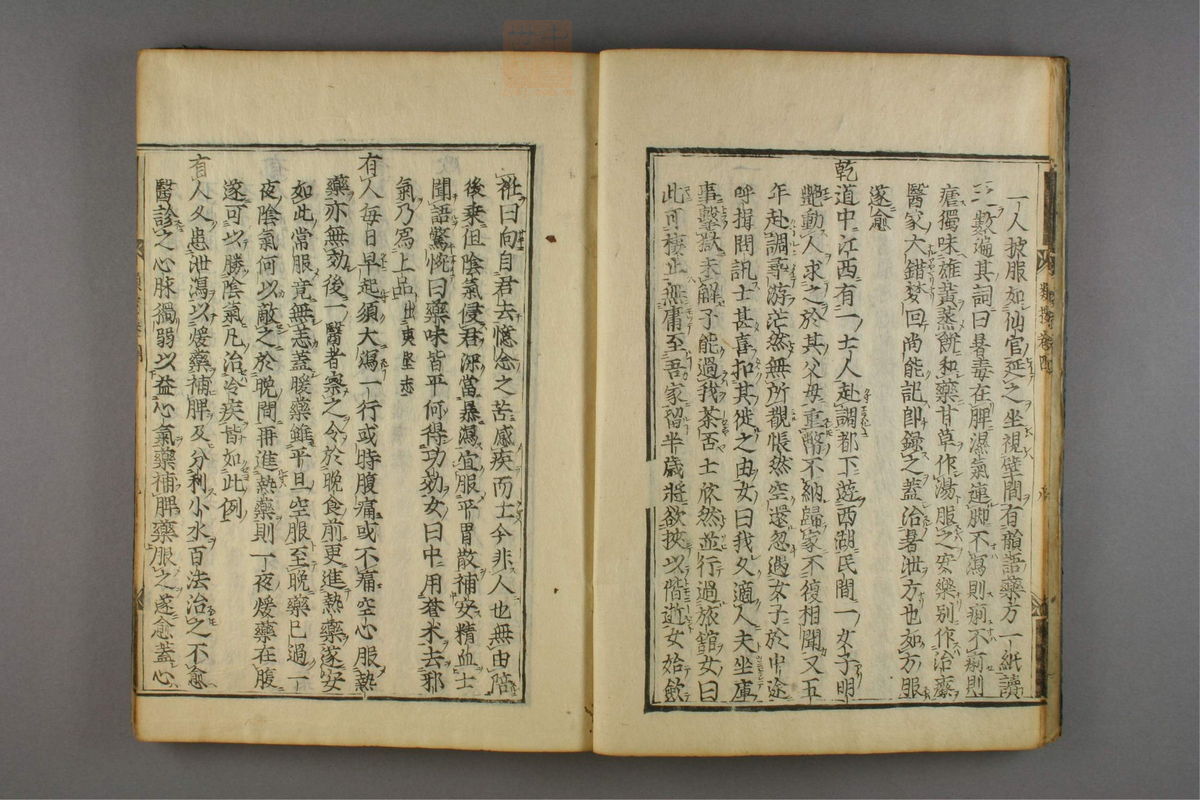 一人披服如仙官延之坐視壁間有韻語藥方一紙讀
三數遍其詞曰暑毒在脾濕氣連脚不瀉則痢不痢則
瘧獨味雄黃蒸餅和藥甘草作湯服之安樂別作治療
醫家大錯夢回尚能記即錄之蓋治暑泄方也如方服
遂愈
乾道中江西有一士人赴調都下遊西湖民間一女子明
艷動人求之於其父母重幣不納歸家不復相聞又五
年赴調尋游茫然無所覩悵然空還忽遇女子於中途
呼揖問訊士甚喜扣其徙之由女曰我久適人夫坐庫
事繫獄未解子能過我茶否士欣然並行過旅館女曰
此可棲止無庸至吾家留半歲將欲挾以偕逝女始歛
衽曰向自君去憶念之苦感疾而士今非人也無由陪
後乘但陰氣侵君深當暴瀉宜服平胃散補安精血士
聞語驚惋曰藥味皆平何得功効女曰中用蒼朮去邪
氣乃爲上品出夷堅志
有人每日早起須大瀉一行或時腹痛或不痛空心服熱
藥亦無効後一醫者察之令於晚食前更進熱藥遂安
如此常服竟無恙蓋暖藥雖平旦空服至晚藥已過一
夜陰氣何以敵之於晚間再進熱藥則一夜煖藥在腹
遂可以勝陰氣凡治冷疾皆如此例
有人久患泄瀉以煖藥補脾及分利小水百法治之不愈
醫診之心脉獨弱以益心氣藥補脾藥服之遂愈蓋心